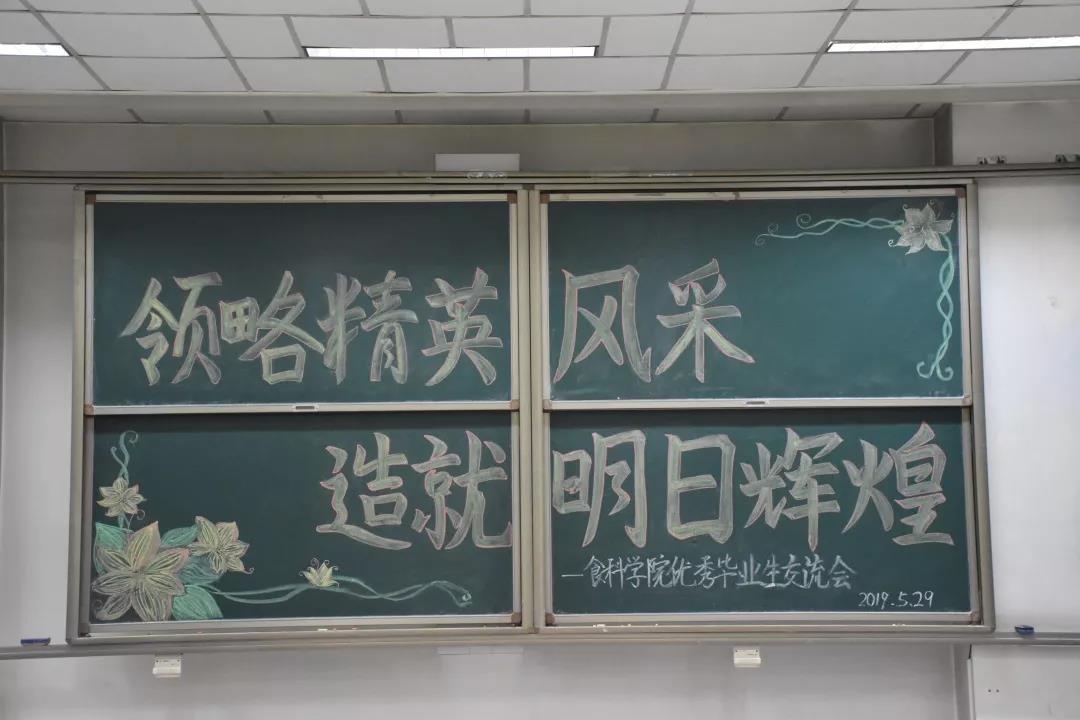 领略精英风采
造就明日辉煌
—食科学院优秀毕业生交流会
2019.5.29